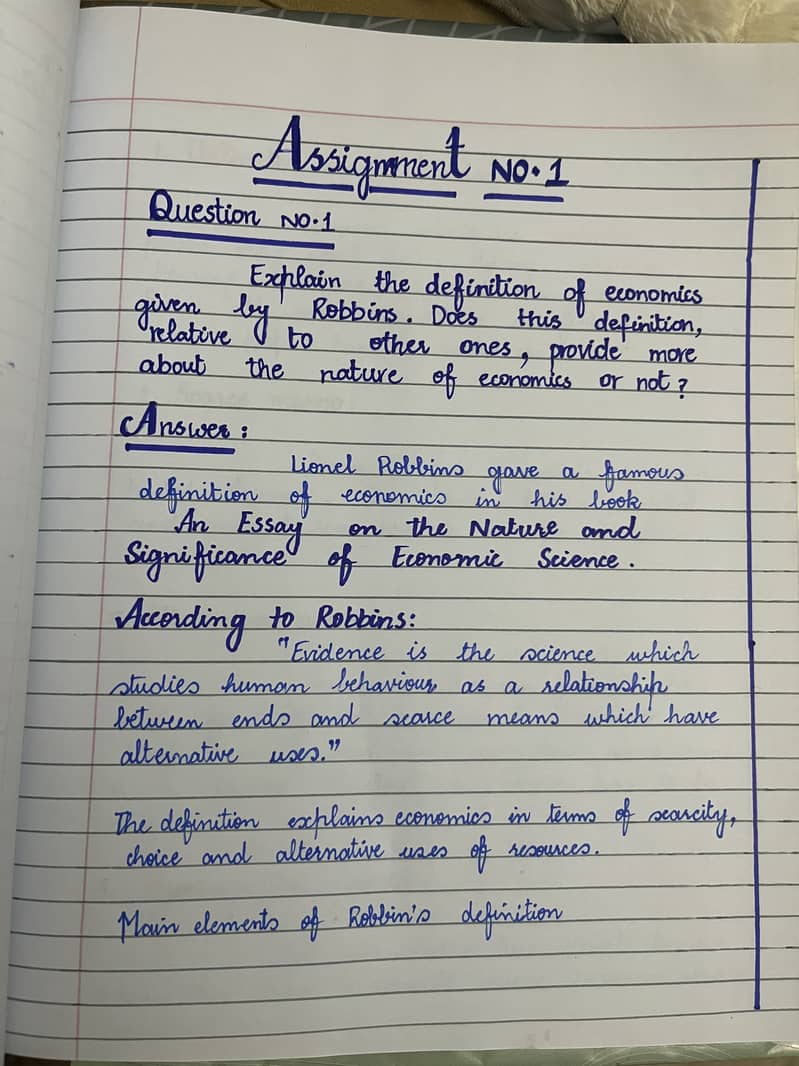 Assignment NO.1
Question NO.1
Explain the definition of economics
given by Robbins. Does this definition,
relative to other ones, provide more
about the nature of economics or not?
Answer:
Lionel Robbins gave a famous
definition of economics in his book
An Essay on the Nature and
Significance of Economic Science.
According to Robbins:
"Evidence is the science which
studies human behaviour as a relationship
between ends and scarce means which have
alternative uses."
The definition explains economics in terms of scarcity,
choice and alternative uses of resources.
Main elements of Robbin's definition